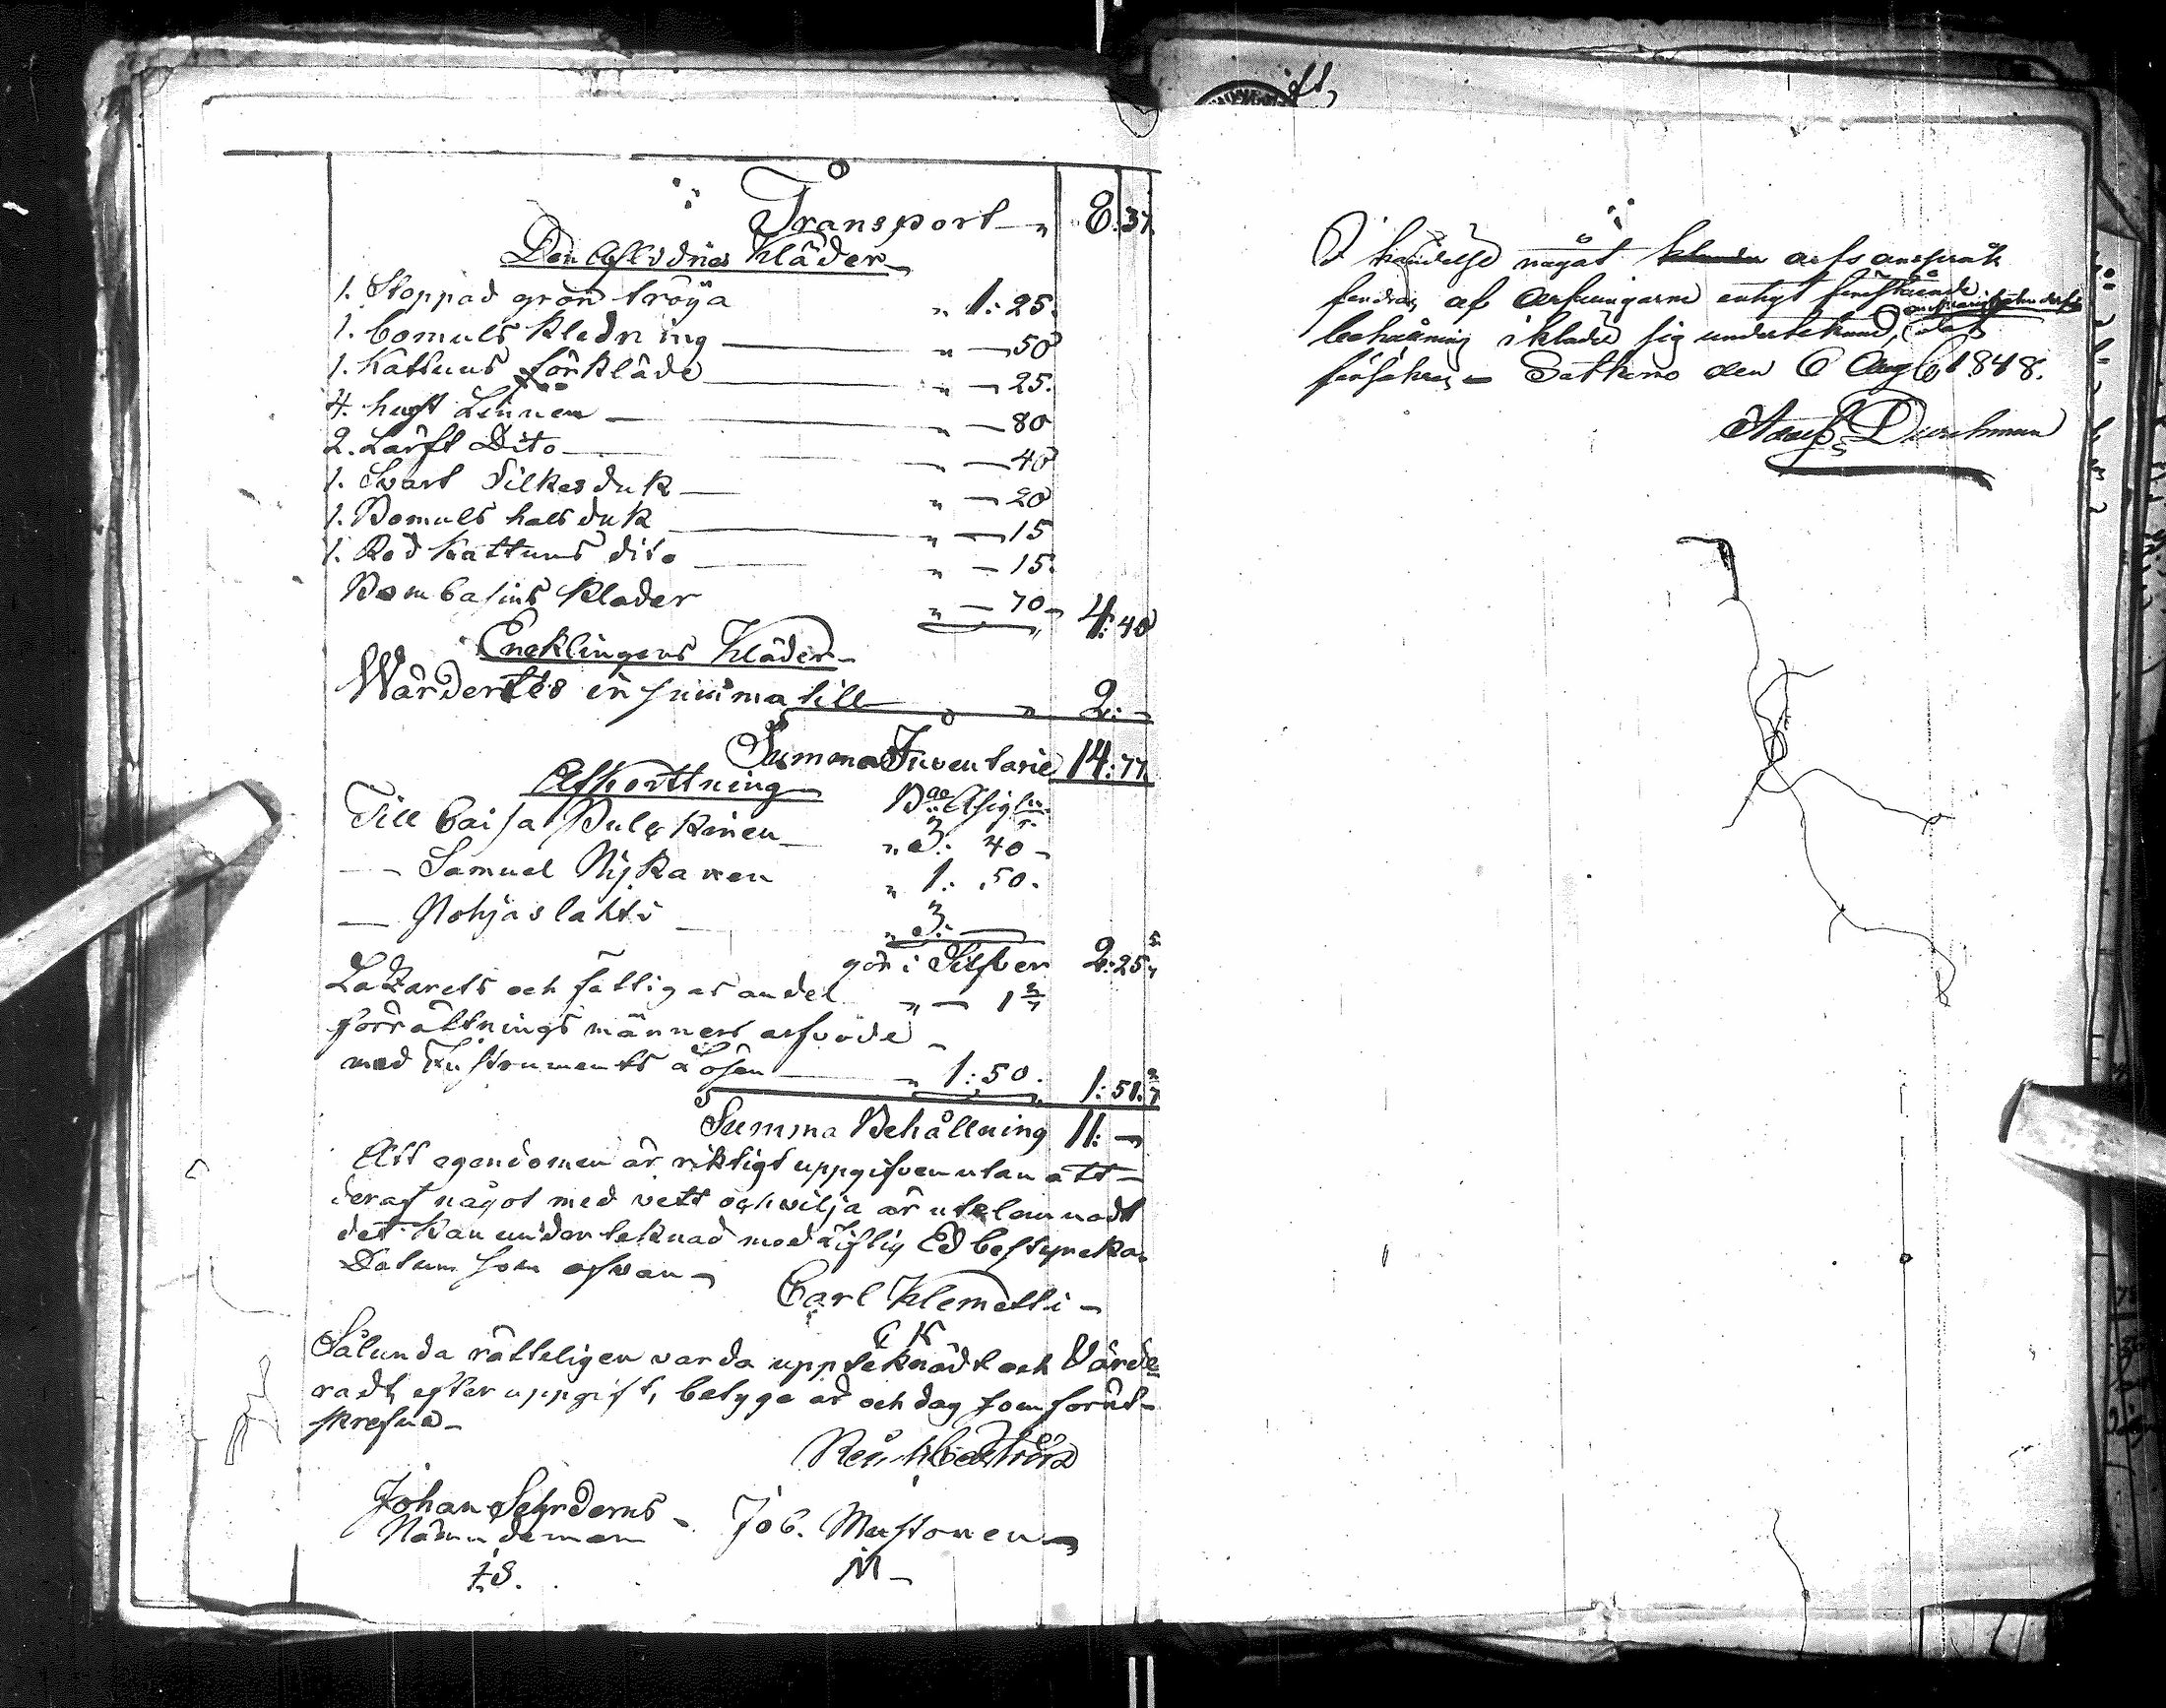 Transport „ 8: 37.
Den Aflednes Kläder
1. Stoppad grön tröya „ 1: 25.
1. Bomuls Kledning „ — 50
1. Kattuns förkläde „ — 25.
4. hugt Linnen „ — 80
2. Lärft Dito „ — 40
1. Svart Silkesduk „ — 20
1. Bomuls halsduk „ — 15
1. Röd Kattuns dito „ — 15.
Bombasins Kläder „ — 70 4: 40
Encklingens Kläder
Wärdertes in summa till „ 2: —
Summa Inventarie 14: 77.
Afkorttning
Till Caisa Pulckinen „ 3: 40
— Samuel Nykanen „ 1: 50.
— Nohjaslahti „ 3: —
gör i Silfver 2: 25 5/7
Lazarets och fattigas andel „ — 1 2/7
förrättnings männens arfvode
med Instruments Lösen „ 1: 50. 1: 51. 2/7
Summa Behållning 11: —
Att egendomen är riktigt uppgifven utan att
deraf något med vett och vilja är utelemnadt
det kan undertecknad med Liflig Ed bestyrcka.
Datum som ofvan
Carl Klemetti
C K
Sålunda rätteligen varda upptecknadt och Värde
radt, efter uppgift, betyga år och dag som förut
skrefne
Johan Sehrderus Job. Mustonen
Nämndeman M
J.S.
I händelse något arfs anspråk
fendras af Arfvingarne enligt förestående
behållning ikläder sig undertecknad,
den 6 Aug 1848.